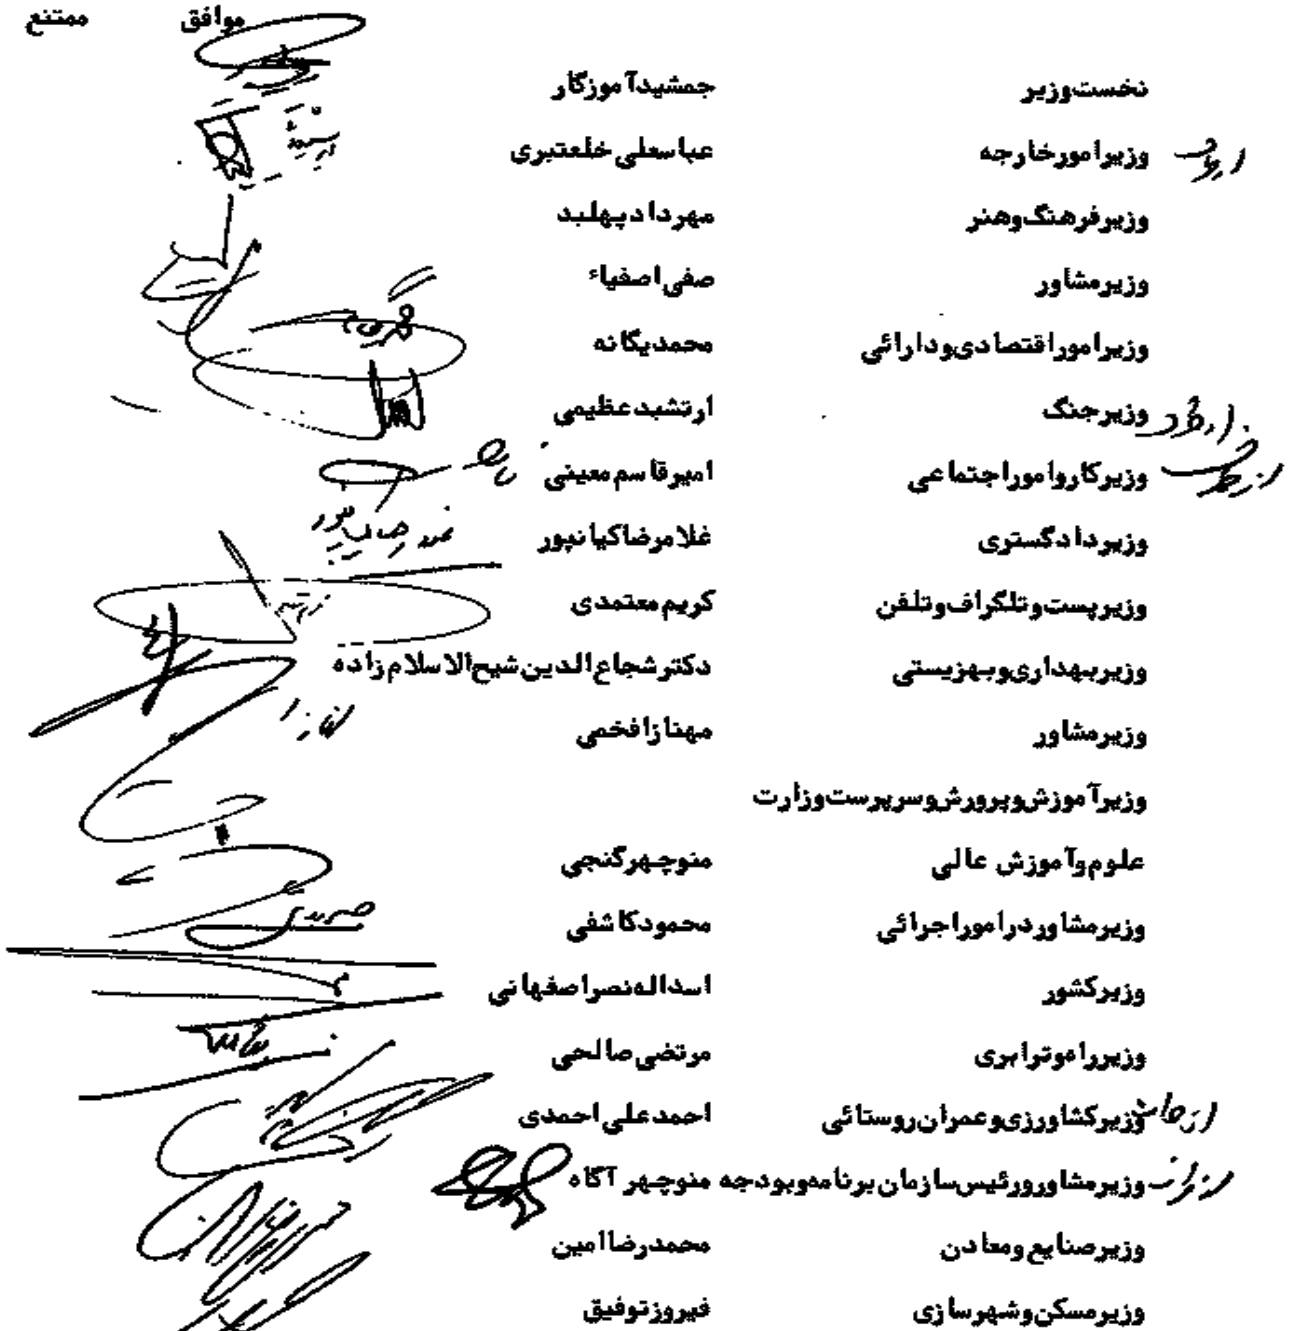 موافق ممتنع
نخست‌وزیر جمشیدآموزگار
وزیرامورخارجه عباسعلی خلعتبری
وزیرفرهنگ‌وهنر مهردادپهلبد
وزیرمشاور صفی‌اصفیاء
وزیراموراقتصادی‌ودارائی محمدیگانه
وزیرجنگ ارتشبدعظیمی
وزیرکارواموراجتماعی امیرقاسم‌معینی
وزیردادگستری غلامرضاکیانپور
وزیرپست‌وتلگراف‌وتلفن کریم‌معتمدی
وزیربهداری‌وبهزیستی دکترشجاع‌الدین‌شیح‌الاسلام‌زاده
وزیرمشاور مهنازافخمی
وزیرآموزش‌وپرورش‌وسرپرست‌وزارت
علوم‌وآموزش عالی منوچهرگنجی
وزیرمشاوردراموراجرائی محمودکاشفی
وزیرکشور اسداله‌نصراصفهانی
وزیرراه‌وترابری مرتضی‌صالحی
وزیرکشاورزی‌وعمران‌روستائی احمدعلی‌احمدی
وزیرمشاورورئیس‌سازمان‌برنامه‌وبودجه منوچهر آگاه
وزیرصنایع‌ومعادن محمدرضاامین
وزیرمسکن‌وشهرسازی فیروزتوفیق